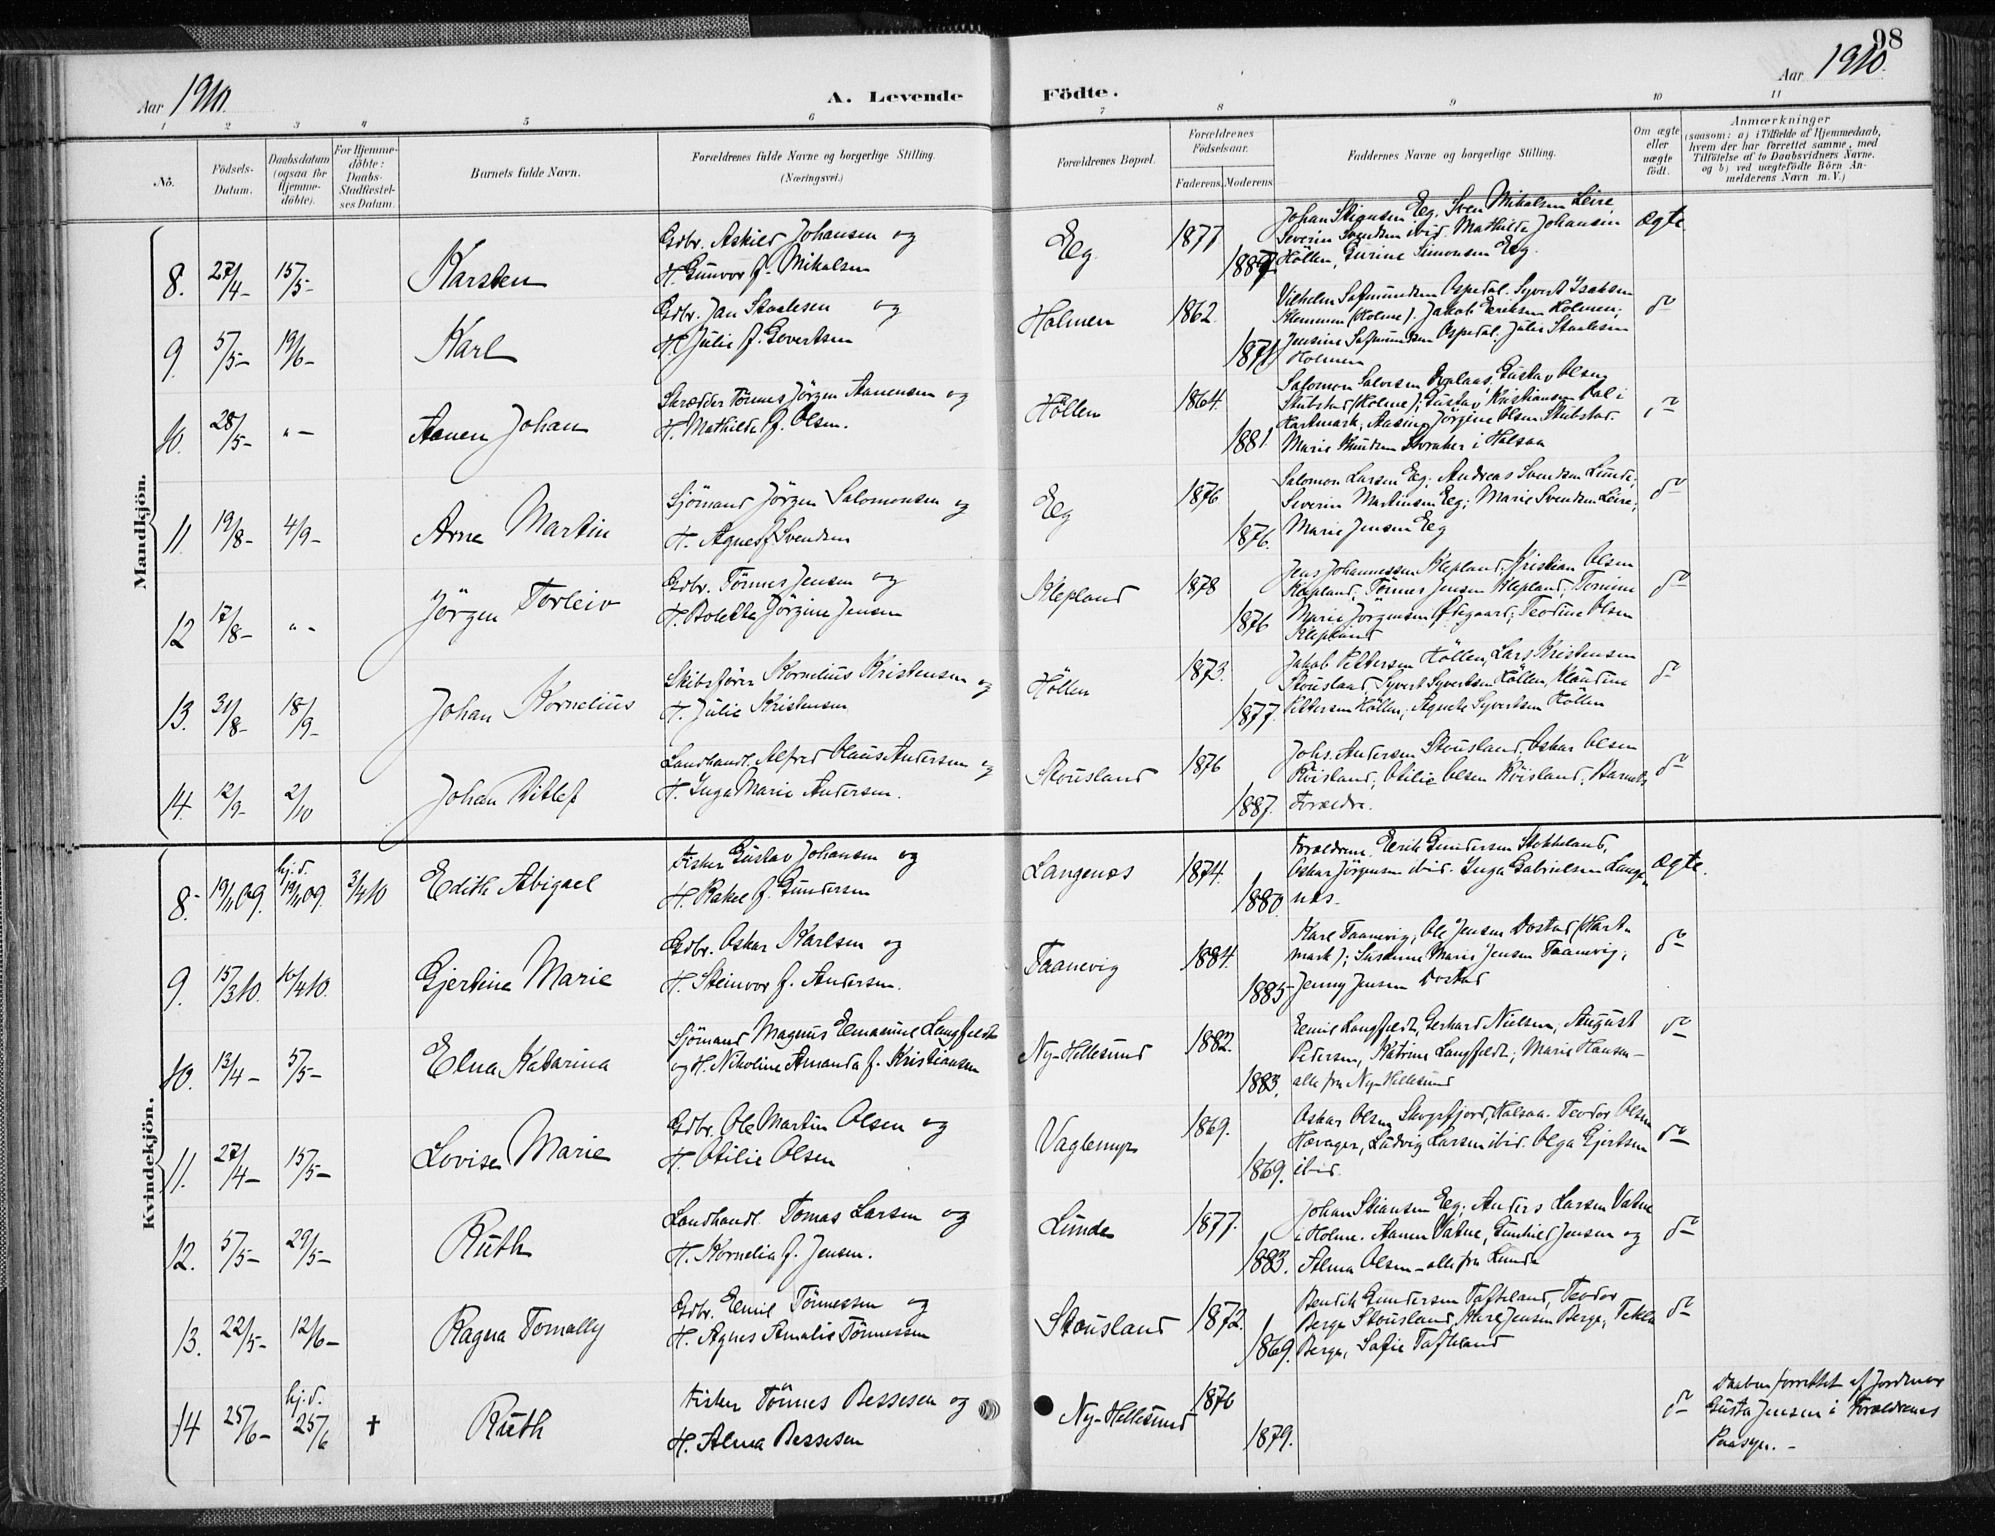 98
Aar 1910.
A. Levende Födte.
Aar 1910.
1 2 3 4 5 6 7 8 9 10 11
No.
Födsels-Datum.
Daabsdatum (ogsaa för Hjemme-döbte).
For Hjemme-döbte: Daabs-Stadfæstel-ses Datum.
Barnets fulde Navn.
Forældrenes fulde Navne og borgerlige Stilling.
(Næringsvei.)
Forældrenes Bopæl.
Forældrenes Födselsaar.
Faderens. Moderens.
Faddernes Navne og borgerlige Stilling.
Om ægte eller uægte födt.
Anmærkninger
(saasom: a) i Tilfælde af Hjemmedaab,
hvem der har forrettet samme, med
Tilföielse af to Daabsvidners Navne.
og b) ved uægtefödte Börn An-
melderens Navn m. V.)
Mandkjön.
8. 27/4- 15/5- Karsten
Gdbr. Askild Johansen og
H. Gunvor f. Mikalsen
Eeg 1877 1887
Johan Stiansen Eeg. Sven Mikalsen Leire
Severin Svendsen ibid. Mathilde Johansen
Höllen, Gurine Simonsen Eeg.
ægte
9. 5/5- 19/6- Karl
Gdbr. Jan Staalesen og
H. Julie f. Govertsen
Holmen 1862. 1871
Vilhelm Salmundsen Ospedal. Syvert Isaksen
(Holme). Jakob Eriksen Holmen;
Jensine Salmundsen Ospedal. Julie Staalesen
Holmen
do
10. 28/5- "- Aanen Johan
Skrædder Tönnes Jörgen Aanensen og
H. Mathilde f. Olsen.
Höllen 1864. 1881
Salomon Salvesen Gustav Olsen
Stubstad (Holme); Gustav Kristiansen Dal i
Hartmark; Jörgine Olsen Stubstad.
Marie Knudsen i Halsaa
do
11. 19/8- 4/9- Arne Martin
Sjömand Jörgen Salomonsen og
H. Agnes f. Svendsen
Eeg 1876. 1876.
Salomon Larsen Eeg; Andreas Svendsen Lunde;
Severin Martinsen Eeg; Marie Svendsen Leire;
Marie Jensen Eeg
do
12 17/8- "- Jörgen Torleiv
Gdbr. Tönnes Jensen og
H. Bolette Jörgine Jensen
Klepland 1878 1876
Jens Johannessen Klepland; Kristian Olsen
Klepland; Tönnes Jensen Klepland; Tomine
Marie Jörgensen Ödegaard; Teodine Olsen
Klepland
do
13. 31/8- 18/9- Johan Kornelius
Skibsförer Kornelius Kristensen og
H. Julie Kristensen
Höllen 1873. 1877.
Jakob Pettersen Höllen, Lars Kristensen
Stousland, Syvert Syvertsen Höllen, Klaudine
Pettersen Höllen; Agnete Syvertsen Höllen
do
14. 12/9- 2/10 Johan Ditlef
Landhandl. Alfred Olaus Andersen og
H. Inga Marie Andersen.
Stousland 1876 1887.
Johs. Andersen Stousland. Oskar Olsen
Röisland; Otilie Olsen Röisland; Barnets
Forældre.
do
Kvindekjön.
8. 19/11 09. hj. d. 19/11 09. 3/4 10 Edith Abigael
Fisker Gustav Johansen og
H. Rakel f. Gundersen
Langenes 1874. 1880.
Forældrene. Eerik Gundersen Stokkeland,
Oskar Jörgensen ibid. Inga Gabrielsen Lange-
nes.
ægte.
9. 15/3 10. 10/4 10. Gjertine Marie
Gdbr. Oskar Karlsen og
H. Steinvor f. Andersen.
Taanevig 1884. 1885
Karl Taanevig, Ole Jensen Dostad (Hart-
mark); Susanne Marie Jensen Taanevig;
Jenny Jensen Dostad
do
10. 13/4- 5/5- Elna Katarina
Sjömand Magnus Emanuel Langfeldt
og H. Nikoline Amanda f. Kristiansen
Ny-Hellesund 1882. 1883.
Emil Langfeldt, Gerhard Nielsen, August
Pedersen, Katrine Langfeldt; Marie Hansen-
alle fra Ny-Hellesund
do
11. 27/4- 15/5- Lovise Marie
Gdbr. Ole Martin Olsen og
H. Otilie Olsen
Vaglemyr 1869. 1869.
Oskar Olsen Skogsfjord, Halsaa. Teodor Olsen
Havager, Ludvig Larsen ibid. Olga Gjertsen
ibid.
do
12. 5/5- 29/5- Ruth
Landhandl. Tomas Larsen og
H. Kornelia f. Jensen.
Lunde 1877. 1883.
Johan Stiansen Eeg; Anders Larsen Vatne
i Holme. Aanen Vatne, Gunhild Jensen og
Alma Olsen - alle fra Lunde
do
13. 22/5- 12/6- Ragna Tomally
Gdbr. Emil Tönnessen og
H. Agnes Amalie Tönnessen
Stousland 1872. 1869.
Bendik Gundersen Tofteland, Teodor
Berge Stousland, Karl Jensen Berge, Tekla
Berge, Sofie Tofteland
do
14 25/6- hj. d. 25/6 † Ruth
Fisker Tönnes Bessesen og
H. Alma Bessesen
Ny-Hellesund 1876 1879.
do
Daaben forrettet af Jordmor
Gusta Jensen i Forældrenes
Paasyn. -